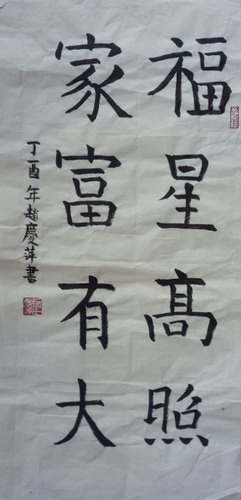 福星高照
家富有大
丁酉年赵慶萍書